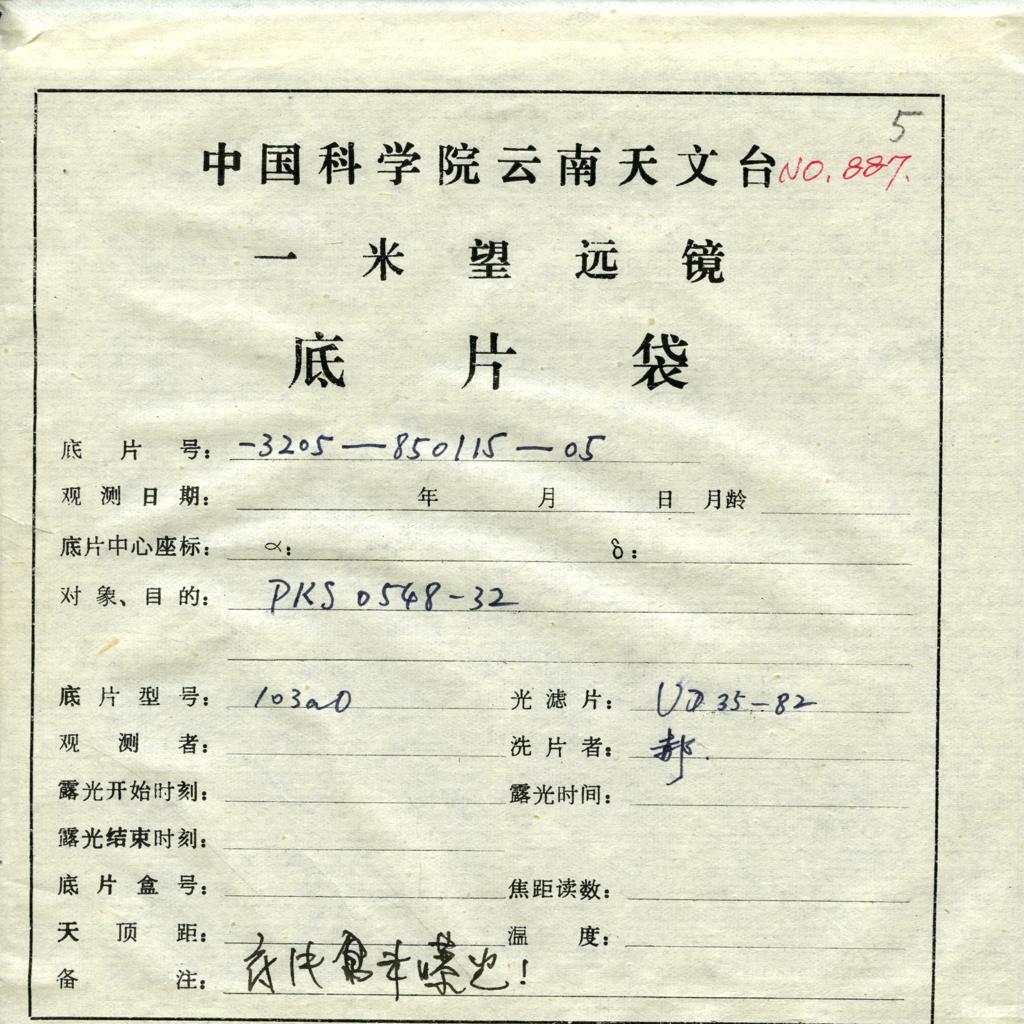 5
中国科学院云南天文台 NO. 887.
一米望远镜
底片袋
底片号: -3205-850115-05
观测日期: 年 月 日 月龄
底片中心座标: α: δ:
对象、目的: PKS 0548-32
底片型号: 103aO 光滤片: 35-82
观测者: 洗片者: 郝.
露光开始时刻: 露光时间:
露光结束时刻:
底片盒号: 焦距读数:
天顶距: 温度:
备注: !